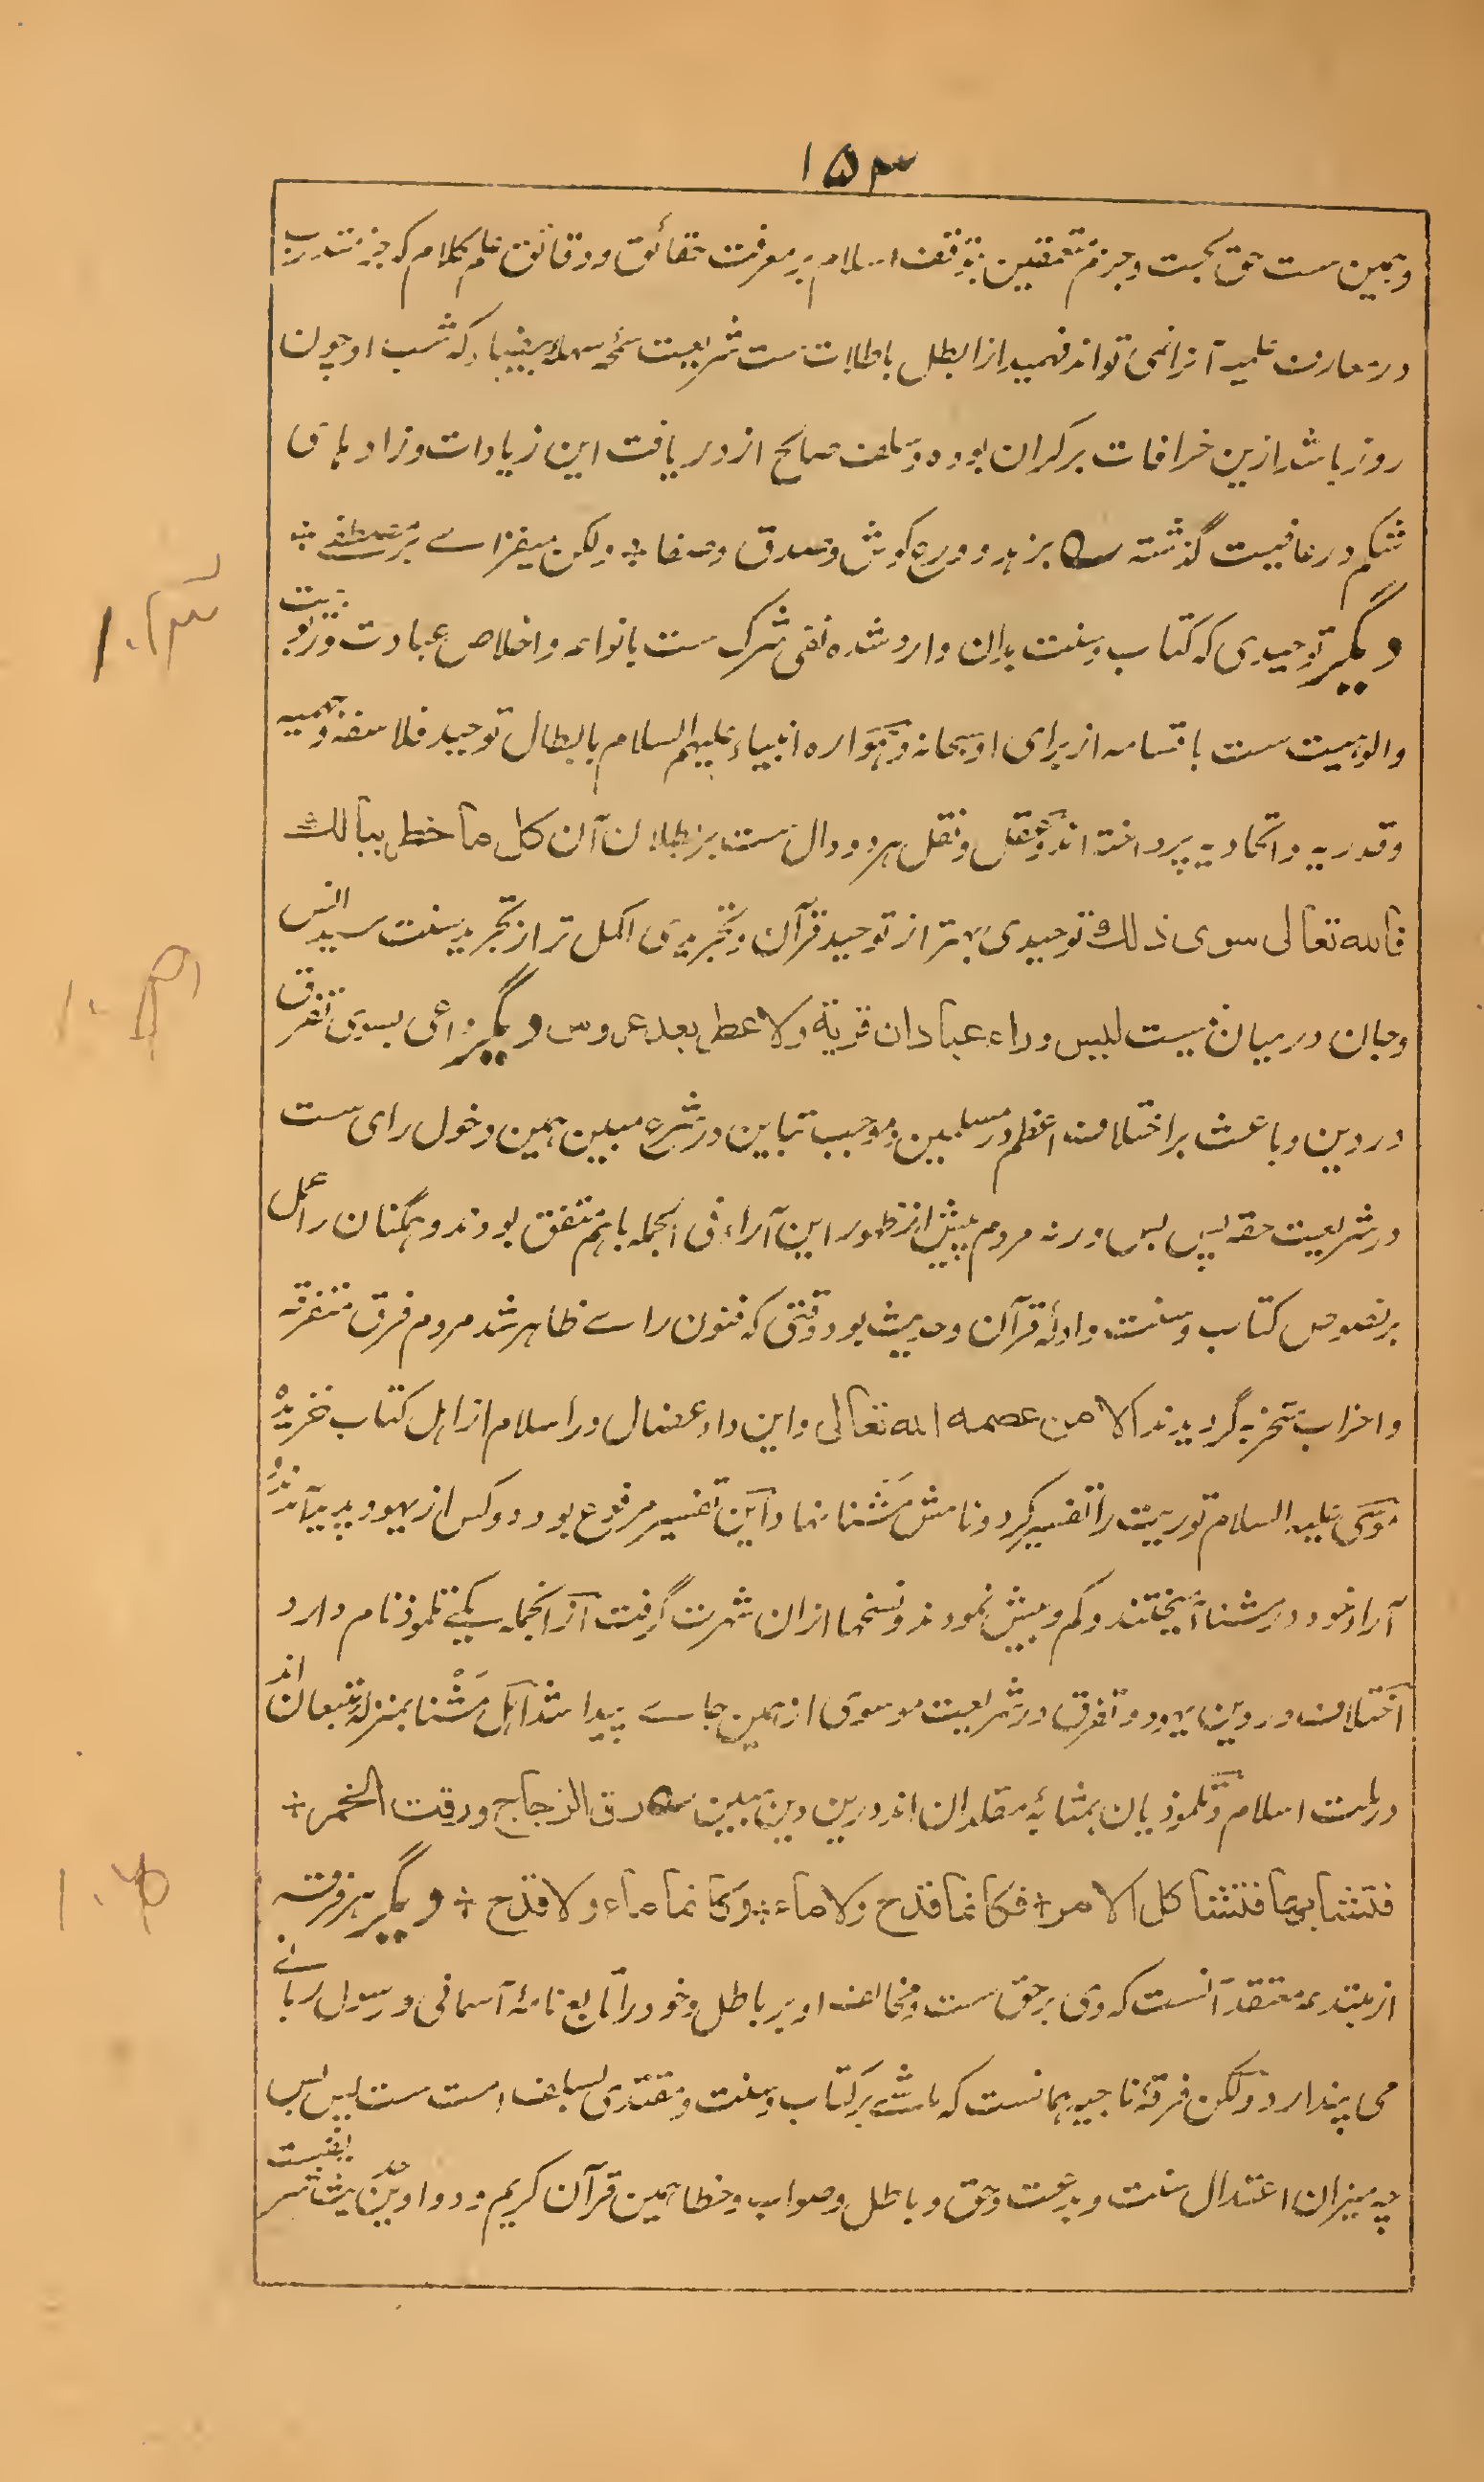 ۱۵۳
و همین ست حق بحت و جزم متعمقین بتوقف اسلام بر معرفت حقائق و دقائق علم کلام که جز متدرب
در معارف علمیه آنرا نمی تواند فهمید از ابطل باطلات ست شریعت سمحه سهله بیضا که شب او چون
روز باشد ازین خرافات برکران بوده و سلف صالح از دریافت این زیادات و زاد بای
شکم در عافیت گذشته بزهد و ورع کوش و صدق و صفا ÷ ولیکن میفزای بر مصطفی ÷
دیگر توحیدی که کتاب و سنت بدان وارد شده نفی شرک ست بانواعه و اخلاص عبادت و ربوبیت
و الوهیت ست باقسامه از برای او سبحانه و همواره انبیاء علیهم السلام بابطال توحید فلاسفه و جهمیه
و قدریه و اتحادیه پرداخته اند و عقل و نقل هر دو دال ست بر بطلان آن کل ما خطر ببالك
فالله تعالی سوی ذلك توحیدی بهتر از توحید قرآن و تجریدی اکمل تر از تجرید سنت سید انس
و جان در میان نیست لیس وراء عبادان قریة ولا عطر بعد عروس دیگر داعی بسوی تفرق
در دین و باعث بر اختلاف اعظم در مسلمین و موجب تباین در شرع مبین همین دخول رای ست
در شریعت حقه پس بس ورنه مردم پیش از ظهور این آراء فی الجمله باهم متفق بودند و همگنان را عمل
بر نصوص کتاب و سنت و ادلهٔ قرآن و حدیث بود وقتی که فنون رای ظاهر شد مردم فرق متفرقه
و احزاب متحزبه گردیدند الا من عصمه الله تعالی و این داء عضال در اسلام از اهل کتاب خزیده
موسی علیه السلام توریت را تفسیر کرد و نامش مشنا نهاد این تفسیر مرفوع بود دو کس از یهود پدید آمدند و
آراء خود در مشنا آمیختند و کم و بیش نمودند و نسخها ازان شهرت گرفت از انجمله یکی تلموذ نام دارد
اختلاف در دین یهود و تفرق در شریعت موسوی از همین جای پیدا شد اهل مشنا بمنزلهٔ متبعان اند
در امت اسلام و تلموذیان بمثابهٔ مقلدان اند درین دین مبین رق الزجاج ورقت الخمر ÷
فتشابها فتشاكل الامر ÷ فكانما قدح ولا ماء ÷ وكانما ماء ولا قدح ÷ دیگر هر فرقه
از مبتدعه معتقد آنست که وی بر حق ست و مخالف او بر باطل و خود را تابع نامهٔ آسمانی و رسول ربانی
می پندارد ولیکن فرقهٔ ناجیه همانست که ماشی بر کتاب و سنت و مقتدی بسلف امت ست پس بس
چه میزان اعتدال سنت و بدعت و حق و باطل و صواب و خطا همین قرآن کریم و دواوین حدیث شریفست